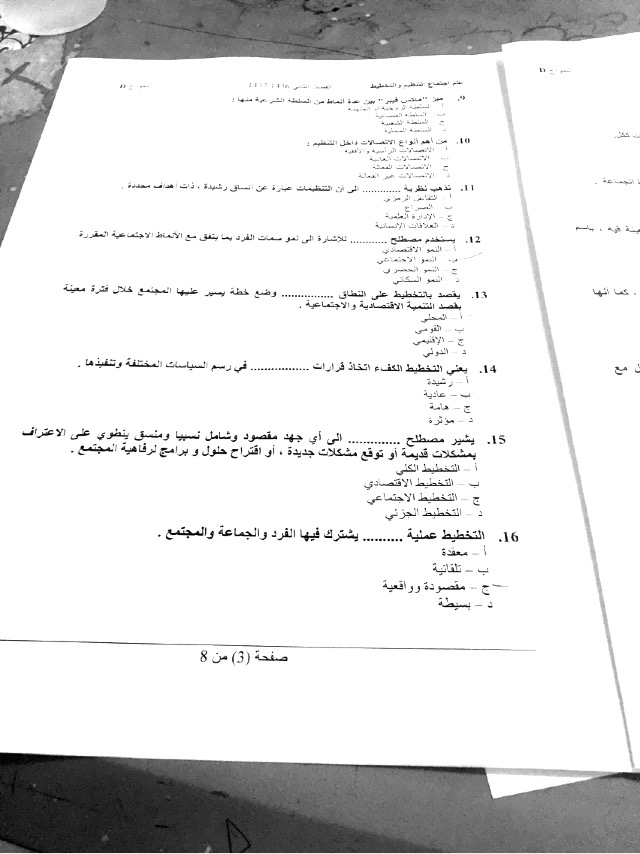 علم اجتماع التنظيم والتخطيط الفصل الثاني 1436-1437 نموذج D
9. ميز "ماكس فيبر" بين عدة أنماط من السلطة الشرعية منها :
أ – السلطة الروحية أو الملهمة
ب – السلطة
ج – السلطة الشعبية
د – السلطة المحلية
10. من أهم أنواع الاتصالات داخل التنظيم :
أ – الاتصالات الرأسية والأفقية
ب – الاتصالات الغائبة
ج – الاتصالات الفعالة
د – الاتصالات غير الفعالة
11. تذهب نظرية ............ الى ان التنظيمات عبارة عن انساق رشيدة ، ذات اهداف محددة .
أ – التفاعل الرمزي
ب – الصراع
ج – الإدارة العلمية
د – العلاقات الإنسانية
12. يستخدم مصطلح ............ للإشارة الى نمو سمات الفرد بما يتفق مع الأنماط الاجتماعية المقررة
أ – النمو الاقتصادي
ب – النمو الاجتماعي
ج – النمو الحضري
د – النمو السكاني
13. يقصد بالتخطيط على النطاق ............... وضع خطة يسير عليها المجتمع خلال فترة معينة
بقصد التنمية الاقتصادية والاجتماعية .
أ – المحلي
ب – القومي
ج – الإقليمي
د – الدولي
14. يعني التخطيط الكفء اتخاذ قرارات ................ في رسم السياسات المختلفة وتنفيذها .
أ – رشيدة
ب – عادية
ج – هامة
د – مؤثرة
15. يشير مصطلح ............. الى أي جهد مقصود وشامل نسبيا ومنسق ينطوي على الاعتراف
بمشكلات قديمة أو توقع مشكلات جديدة ، أو اقتراح حلول و برامج لرفاهية المجتمع .
أ – التخطيط الكلي
ب – التخطيط الاقتصادي
ج – التخطيط الاجتماعي
د – التخطيط الجزئي
16. التخطيط عملية .......... يشترك فيها الفرد والجماعة والمجتمع .
أ – معقدة
ب – تلقائية
ج – مقصودة وواقعية
د – بسيطة
صفحة (3) من 8
نموذج D
ة الجماعة .
ينة فيه ، باسم
، كما انها
ل مع